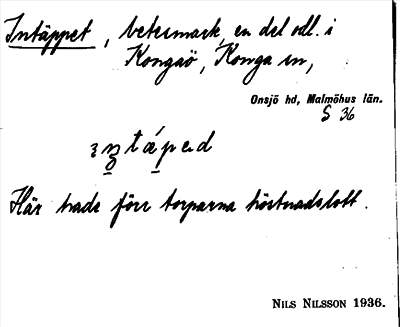 Intäppet, betesmark, en del odl. i
Kongaö, Konga sn,
Onsjö hd, Malmöhus län.
S 36
Här hade förr torparna höstnadslott.
NILS NILSSON 1936.